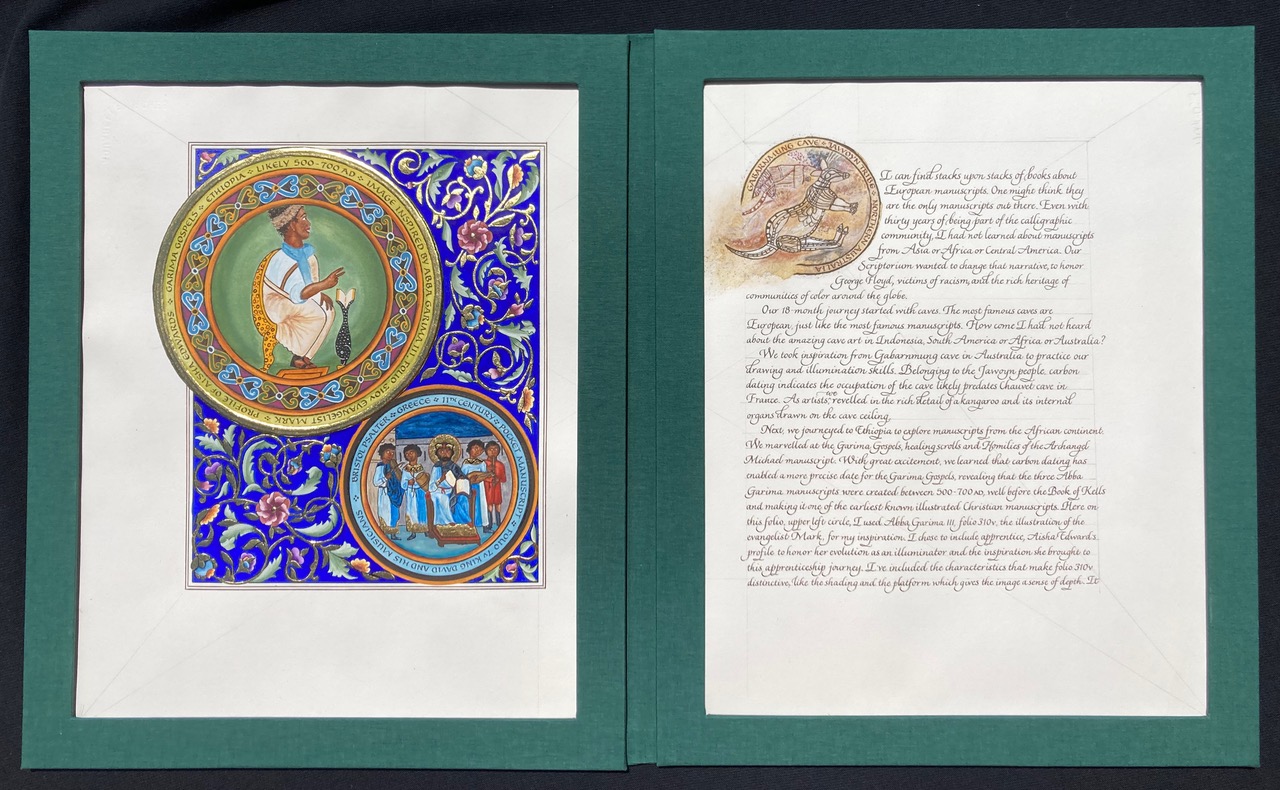 GARIMA GOSPELS · ETHIOPIA · LIKELY 500-700 AD · IMAGE INSPIRED BY ABBA GARIMA III, FOLIO 310V EVANGELIST MARK · PROFILE OF AISHA EDWARDS ·
BRISTOL PSALTER · GREECE · 11TH CENTURY · POCKET MANUSCRIPT · FOLIO 7V KING DAVID AND HIS MUSICIANS ·
GABARNMUNG CAVE · JAWOYN TRIBE NORTHERN AUSTRALIA
I can find stacks upon stacks of books about
European manuscripts. One might think they
are the only manuscripts out there. Even with
thirty years of being part of the calligraphic
community, I had not learned about manuscripts
from Asia or Africa or Central America. Our
Scriptorium wanted to change that narrative, to honor
George Floyd, victims of racism, and the rich heritage of
communities of color around the globe.
Our 18-month journey started with caves. The most famous caves are
European, just like the most famous manuscripts. How come I had not heard
about the amazing cave art in Indonesia, South America or Africa or Australia?
We took inspiration from Gabarnmung cave in Australia to practice our
drawing and illumination skills. Belonging to the Jawoyn people, carbon
dating indicates the occupation of the cave likely predates Chauvet cave in
France. As artists, we revelled in the rich detail of a kangaroo and its internal
organs drawn on the cave ceiling.
Next, we journeyed to Ethiopia to explore manuscripts from the African continent.
We marvelled at the Garima Gospels, healing scrolls and Homilies of the Archangel
Michael manuscript. With great excitement, we learned that carbon dating has
enabled a more precise date for the Garima Gospels, revealing that the three Abba
Garima manuscripts were created between 500-700 AD, well before the Book of Kells
and making it one of the earliest known illustrated Christian manuscripts. Here on
this folio, upper left circle, I used Abba Garima III, folio 310v, the illustration of the
evangelist Mark, for my inspiration. I chose to include apprentice, Aisha Edward's
profile to honor her evolution as an illuminator and the inspiration she brought to
this apprenticeship journey. I've included the characteristics that make folio 310v
distinctive, like the shading and the platform which gives the image a sense of depth. It